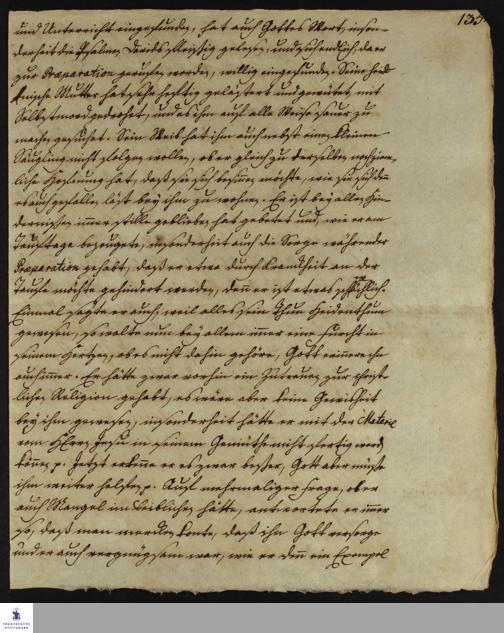 135
und Unterricht eingefunden, hat auch Gottes Wort, inson-
derheit die Psalmen Davids fleißig gelesen, und sich endlich, da er
zur Praeparation gerufen worden, willig eingefunden. Seine heid-
nische Mutter hat sehr heftig gelästert und gewütet, mit
Selbstmord gedrohet, und es ihm auf alle Weise sauer zu
machen gesuchet. Sein Weib hat ihm auch nebst einem kleinen
Säugling nicht folgen wollen, ob er gleich zu derselben noch ziem-
liche Hoffnung hat, daß sie sich besinnen möchte, wie sie sich denn
es auch gefallen läst bey ihm zu wohnen. Er ist bey allen Hin-
dernißen immer stille geblieben, hat gebetet und, wie er am
Tauftage bezeugete, insonderheit auch die Sorge während der
Praeparation gehabt, daß er etwa durch Krankheit an der
Taufe möchte gehindert werden, denn er ist etwas schwächlich.
Einmal sagte er auch, weil alles sein Thun Heidenthum
gewesen, so walte nun bey allem immer eine Furcht in
seinem Herzen, ob es nicht dahin gehöre, Gott erinnere ihn
auch immer. Er hätte zwar vorhin ein Zutrauen zur christ-
lichen Religion gehabt, es wäre aber keine Gewisheit
bey ihm gewesen, insonderheit hätte er mit der Materie
vom HErrn Jesu in seinem Gemüthe nicht fertig werd
können p. Jetzt erkenne er es zwar beßer, Gott aber müste
ihm weiter helfen p. Auf mehrmaliger Frage, ob er
auch Mangel im Leiblichen hätte, antwortete er immer
so, daß man merken konte, daß ihn Gott versorge
und er auch vergnügsam war, wie er denn ein Exempel
FRANCKESCHE
STIFTUNGEN